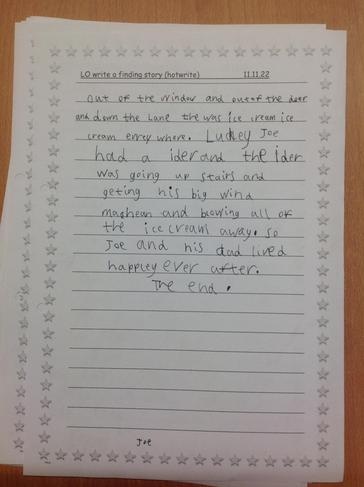 LO write a finding story (hotwrite) 11.11.22
out of the window and out of the door
and down the Lane the was ice cream ice
cream errey where. Luckley Joe
had a ider and the ider
was going up stairs and
geting his big wind
maghean and blowing all of
the ice cream away. so
Joe and his dad lived
happley ever after.
The end.
Joe